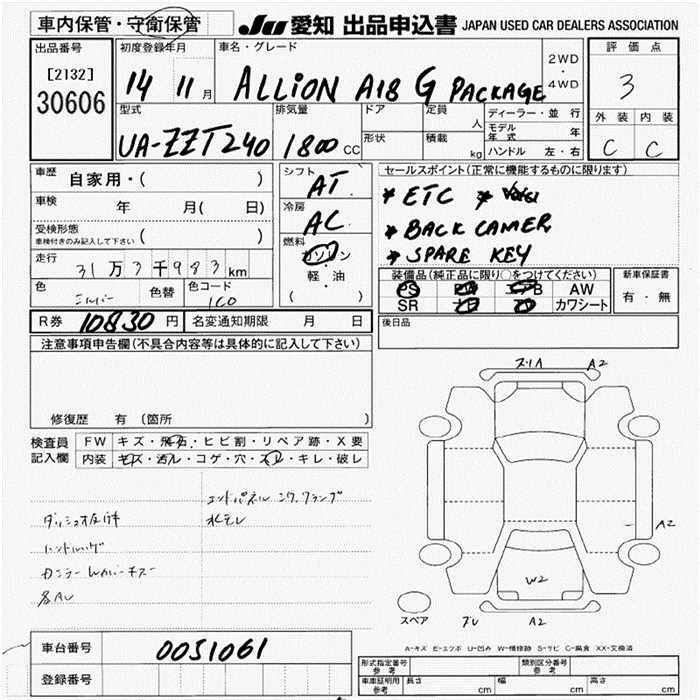 車内保管・守衛保管 JU 愛知 出品申込書 JAPAN USED CAR DEALERS ASSOCIATION
出品番号 初度登録年月 車名・グレード 2WD・4WD 評価点
[2132]
30606 14 11月 ALLION A18 G PACKAGE 3
型式 排気量 ドア 定員 人 ディーラー・並行 外装 内装
UA-ZZT240 1800 CC 形状 積載 kg モデル年式 年 C C
ハンドル 左・右
車歴 自家用・( ) シフト AT セールスポイント(正常に機能するものに限ります)
車検 年 月( 日) 冷房 AC * ETC
受検形態 ( ) * BACK CAMER
車検付きのみ記入して下さい 燃料 ガソリン * SPARE KEY
走行 31万3千983km 軽・油 装備品(純正品に限り○をつけてください) 新車保証書
色 シルバー 色替 色コード 1C0 ( ) PS AW 有・無
SR カワシート
R券 10830円 名変通知期限 月 日 後日品
注意事項申告欄(不具合内容等は具体的に記入して下さい)
修復歴 有 (箇所
検査員 FW キズ・飛石・ヒビ割・リペア跡・X要
記入欄 内装 キズ・汚レ・コゲ・穴・スレ・キレ・破レ
水モレ
A2
A2
W2
スペア A2
A-キズ E-エクボ U-凹み W-補修跡 S-サビ C-腐食 XX-交換済
車台番号 0051061 形式指定番号 参考 類別区分番号 参考
登録番号 車庫証明用 参考 長さ cm 幅 cm 高さ cm